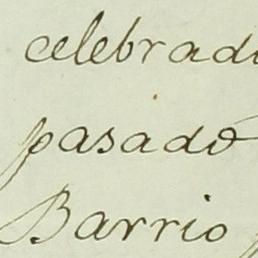 celebrado
pasado
Barrio